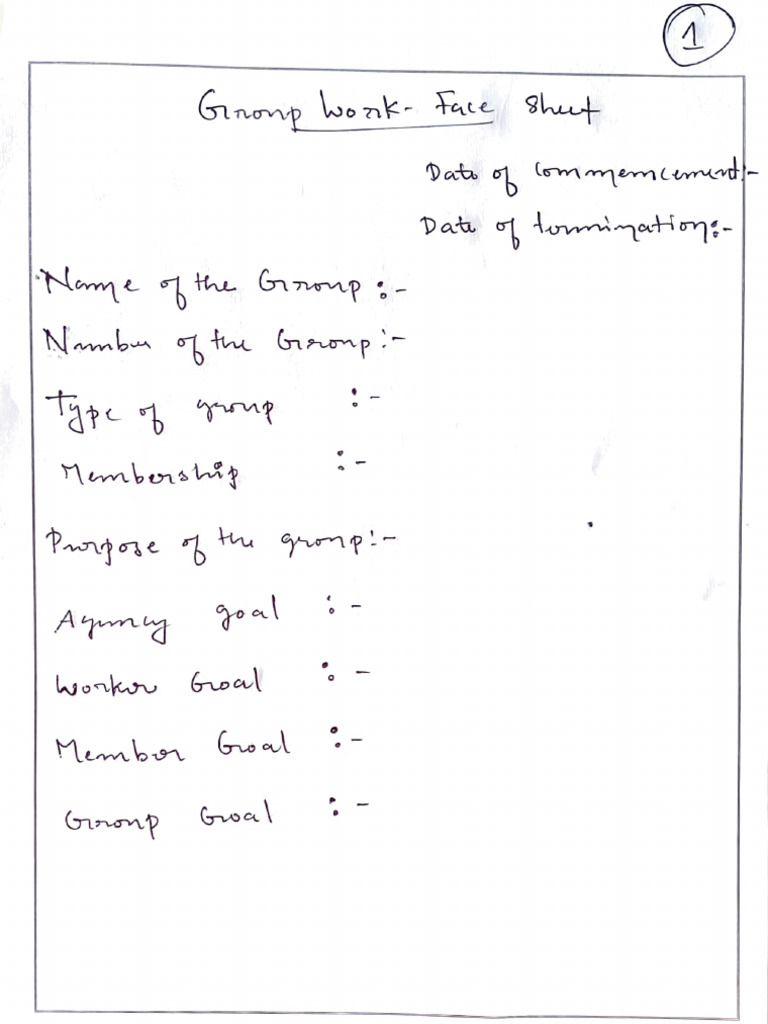 1
Group Work - Face Sheet
Date of commencement:-
Date of termination:-
Name of the Group :-
Number of the Group :-
Type of group :-
Membership :-
Purpose of the group :-
Agency goal :-
Worker Goal :-
Member Goal :-
Group Goal :-